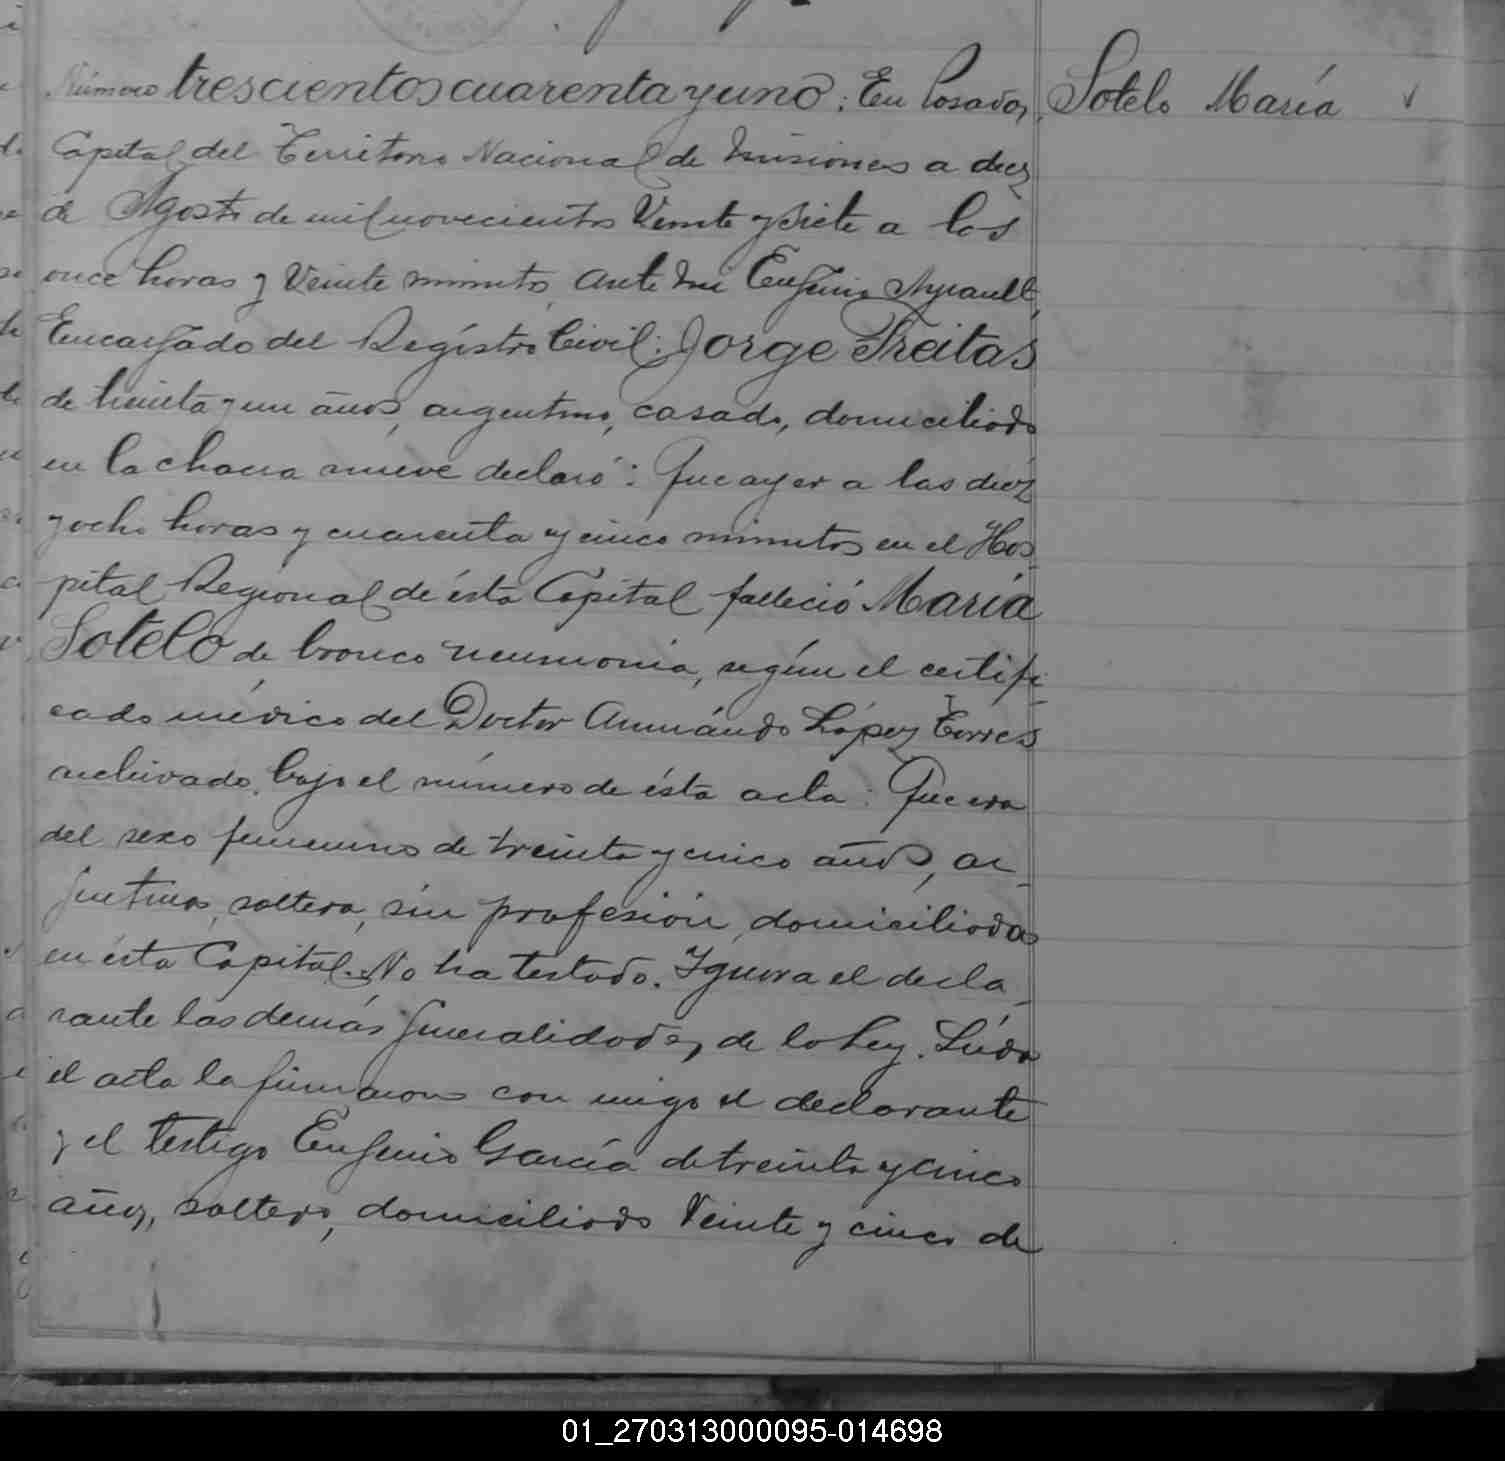 Número trescientos cuarenta y uno: En Posadas, Sotelo María
Capital del Territorio Nacional de Misiones a diez
de Agosto de mil novecientos Veinte y siete a las
once horas y Veinte minutos, ante mi Eugenio Ayrault
Encargado del Registro Civil: Jorge Freitas
de treinta y un años, argentino, casado, domiciliado
en la chacra nueve declaró: Que ayer a las diez
y ocho horas y cuarenta y cinco minutos en el Hos-
pital Regional de ésta Capital falleció María
Sotelo de bronco neumonia, según el certifi-
cado médico del Doctor Armándo López Torres
archivado bajo el número de ésta acta: Que era
del sexo femenino de treinta y cinco años, ar-
gentina, soltera, sin profesión, domiciliada
en ésta Capital. No ha testado. Ignora el decla-
rante las demás generalidades, de la Ley. Leída
el acta la firmaron con migo el declarante
y el testigo Eugenio García de treinta y cinco
años, soltero, domiciliado Veinte y cinco de
01_270313000095-014698